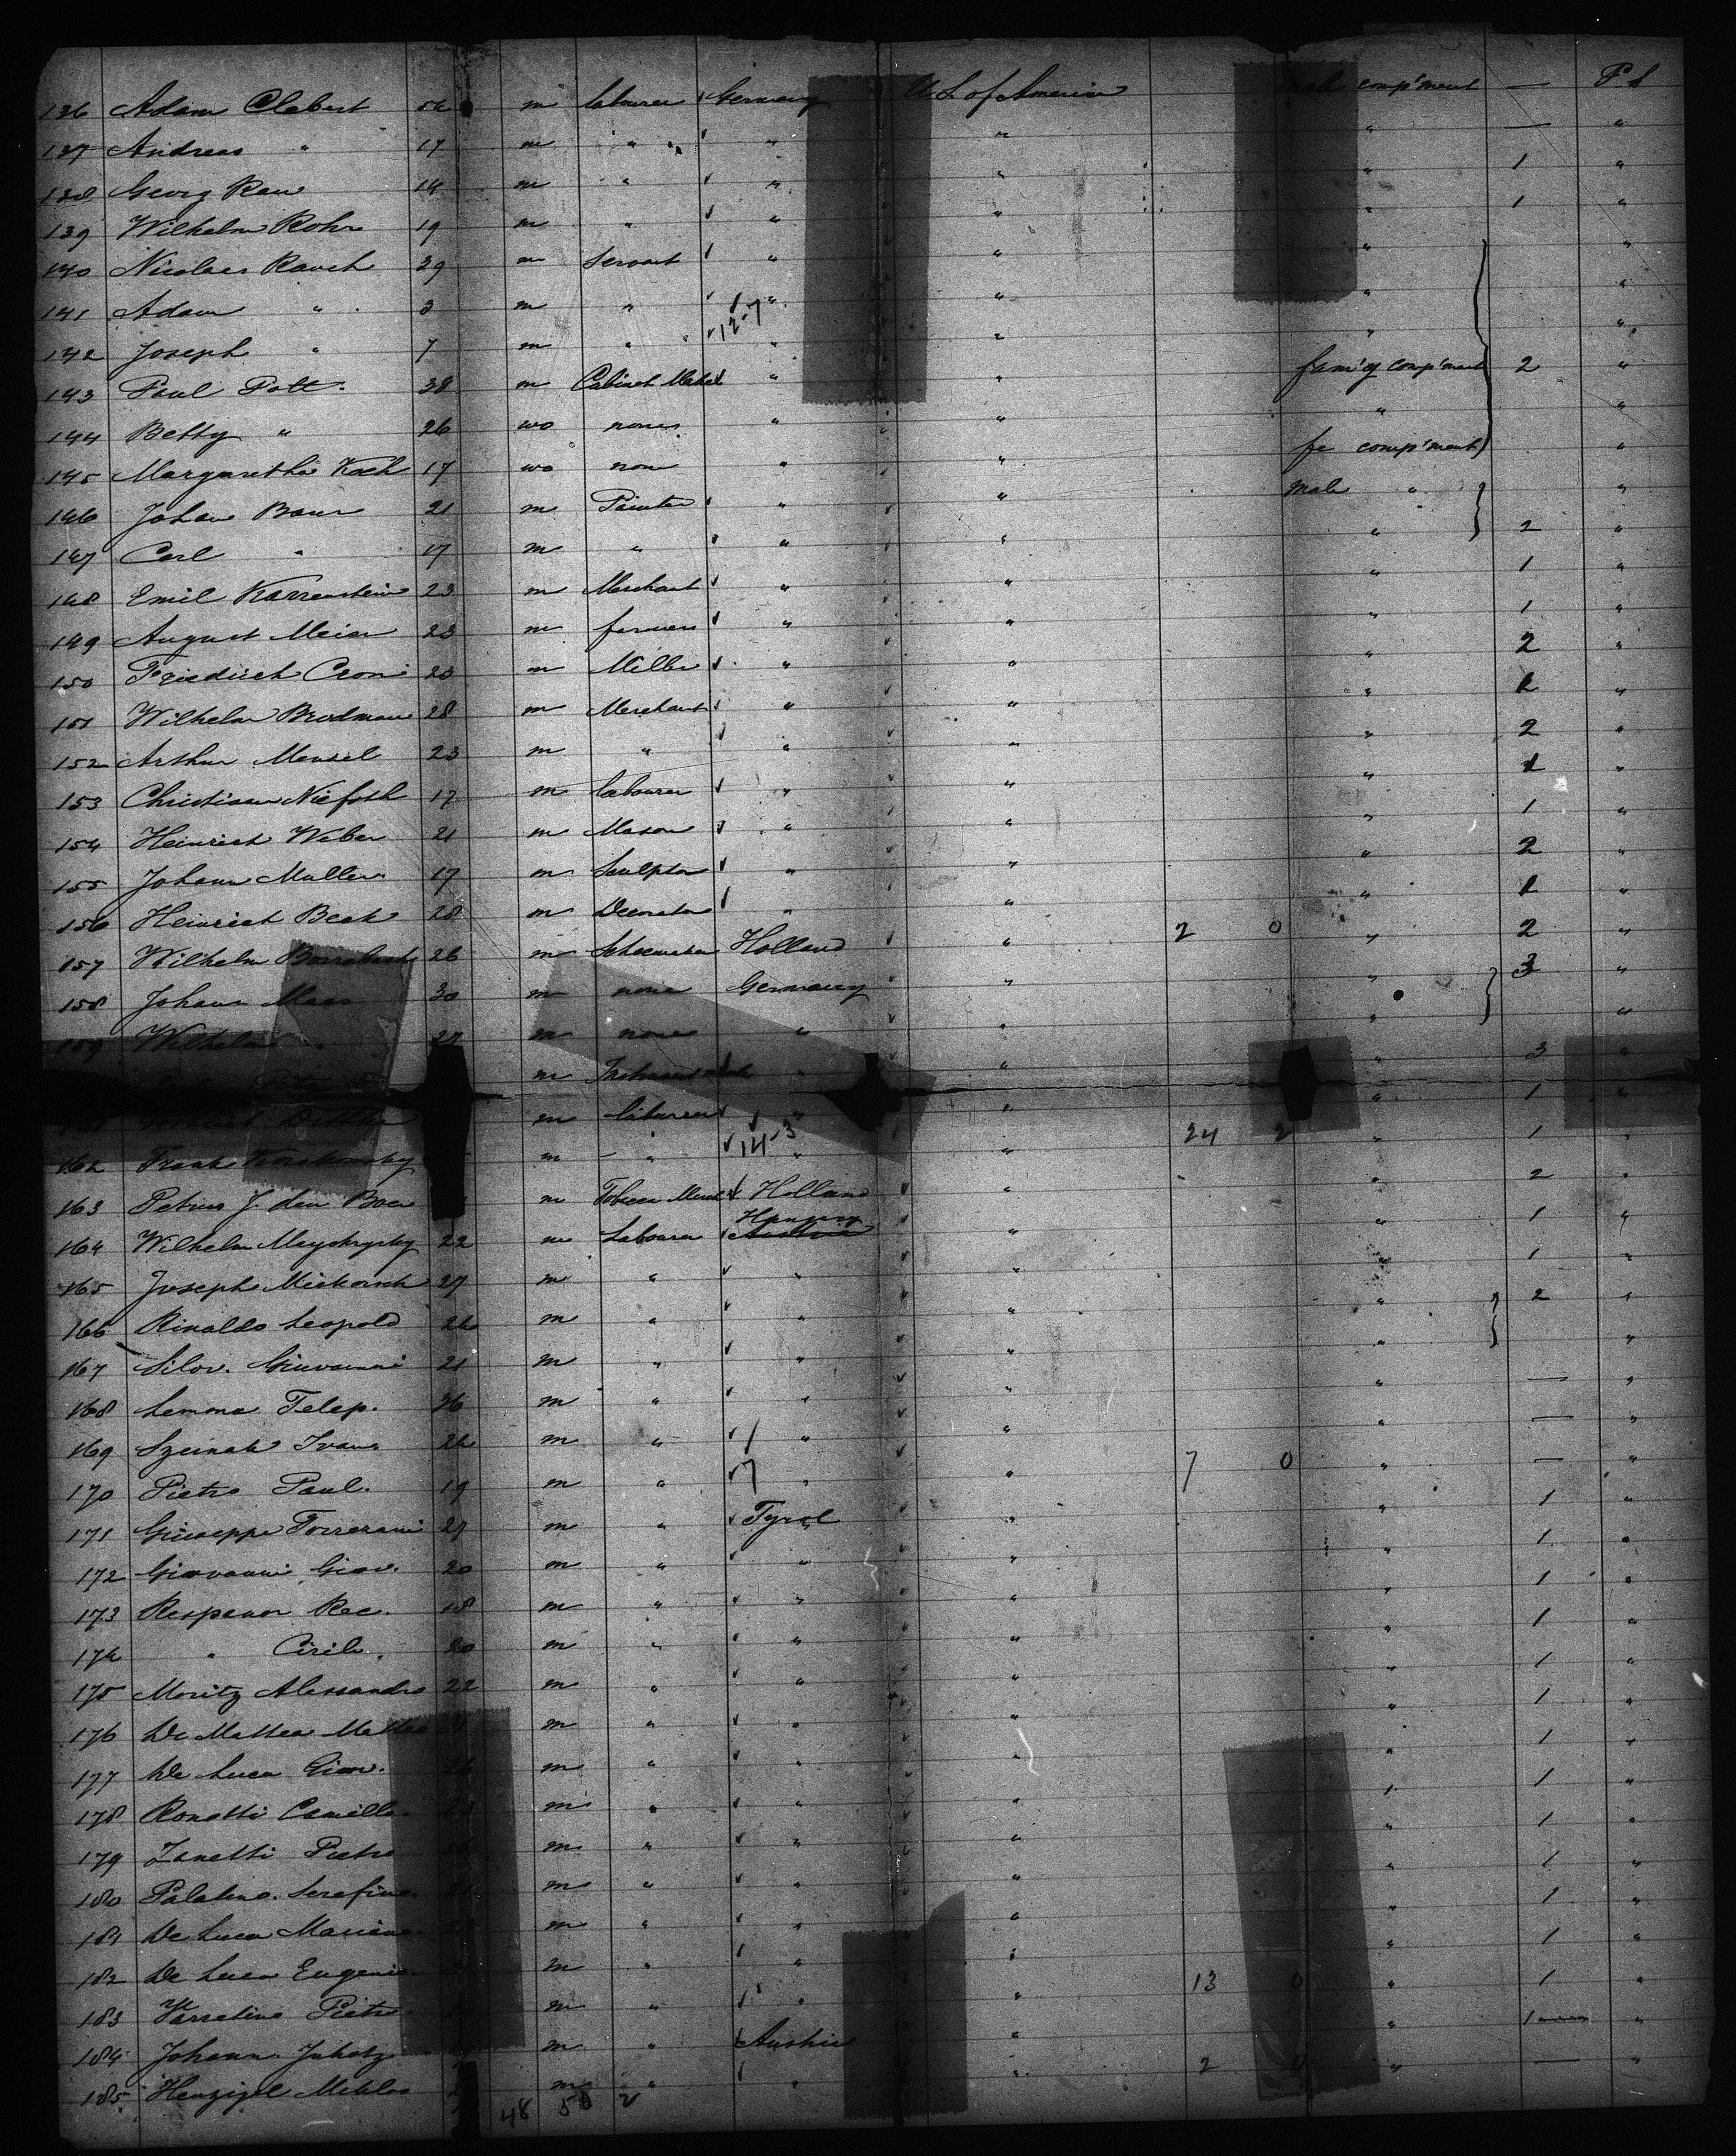 136 Adam Clebert 54 m labourer Germany U S of America male comp'ment — P. S
137 Andreas " 17 m " " " " — "
138 Georg Rau 14 m " " " " 1 "
139 Wilhelm Rohr 19 m " " " " 1 "
140 Nicolaus Rauch 39 m Servant " " " "
141 Adam " 3 m " " " " "
12-7
142 Joseph " 7 m " " " " "
143 Paul Pott 38 m Cabinet Maker " " fam'y comp'ment 2 "
144 Betty " 26 wo none " " " "
145 Margaretha Koch 17 wo none " " fe comp'ment "
146 Johann Baur 21 m Painter " " male " "
147 Carl " 17 m " " " " 2 "
148 Emil Karrenstein 23 m Merchant " " " 1 "
149 August Meier 23 m farmer " " " 1 "
150 Friedrich Cron 20 m Miller " " " 2 "
151 Wilhelm Brodmann 28 m Merchant " " " "
152 Arthur Mensel 23 m " " " " 2 "
153 Christian 17 m labourer " " " "
154 Heinrich Weber 21 m Mason " " " 1 "
155 Johann Muller 17 m Sculptor " " " 2 "
156 Heinrich Beck 28 m Decorator " " " "
157 Wilhelm 26 m Holland " 2 0 " 2 "
158 Johann Maas 30 m none Germany " " 3 "
159 Wilhelm " 27 m none " " " "
m " " " 3 "
m labourer " " " 1 "
14-3
162 Frank m " " " 24 2 " 1 "
163 Petrus J. den Boer m Tobacco Merch Holland " " 2 "
164 Wilhelm 22 m Labourer Hungary " " 1 "
165 Joseph 27 m " " " " 1 "
166 Rinaldo Leopold 24 m " " " " 2 "
167 Silov. Giuvanni 21 m " " " " "
168 Lemma Telep. 36 m " " " " — "
169 Szeinak Ivan 24 m " " " " — "
170 Pietro Paul. 19 m " 7 " " 7 0 " — "
171 Giuseppe Torrerani 27 m " Tyrol " " 1 "
172 Giovanni Giov. 20 m " " " " 1 "
173 Respanor Rec. 18 m " " " " 1 "
174 " Cirill. 20 m " " " " 1 "
175 Moritz Alessandro 22 m " " " " 1 "
176 De Mattea Matteo m " " " " 1 "
177 De Luca Giov. 26 m " " " " 1 "
178 Ronetti Camillo m " " " " 1 "
179 Zanetti Pietro m " " " " 1 "
180 Palatino. Serafino. m " " " " 1 "
181 De Luca Mariano m " " " " 1 "
182 De Luca Eugenio m " " " " 1 "
183 Varratino Pietro m " " " 13 0 " 1 "
184 Johann Juhatz m " Austria " " 1 — "
185 Henzigel Miklos m " " " 2 0 " — "
48 50 2